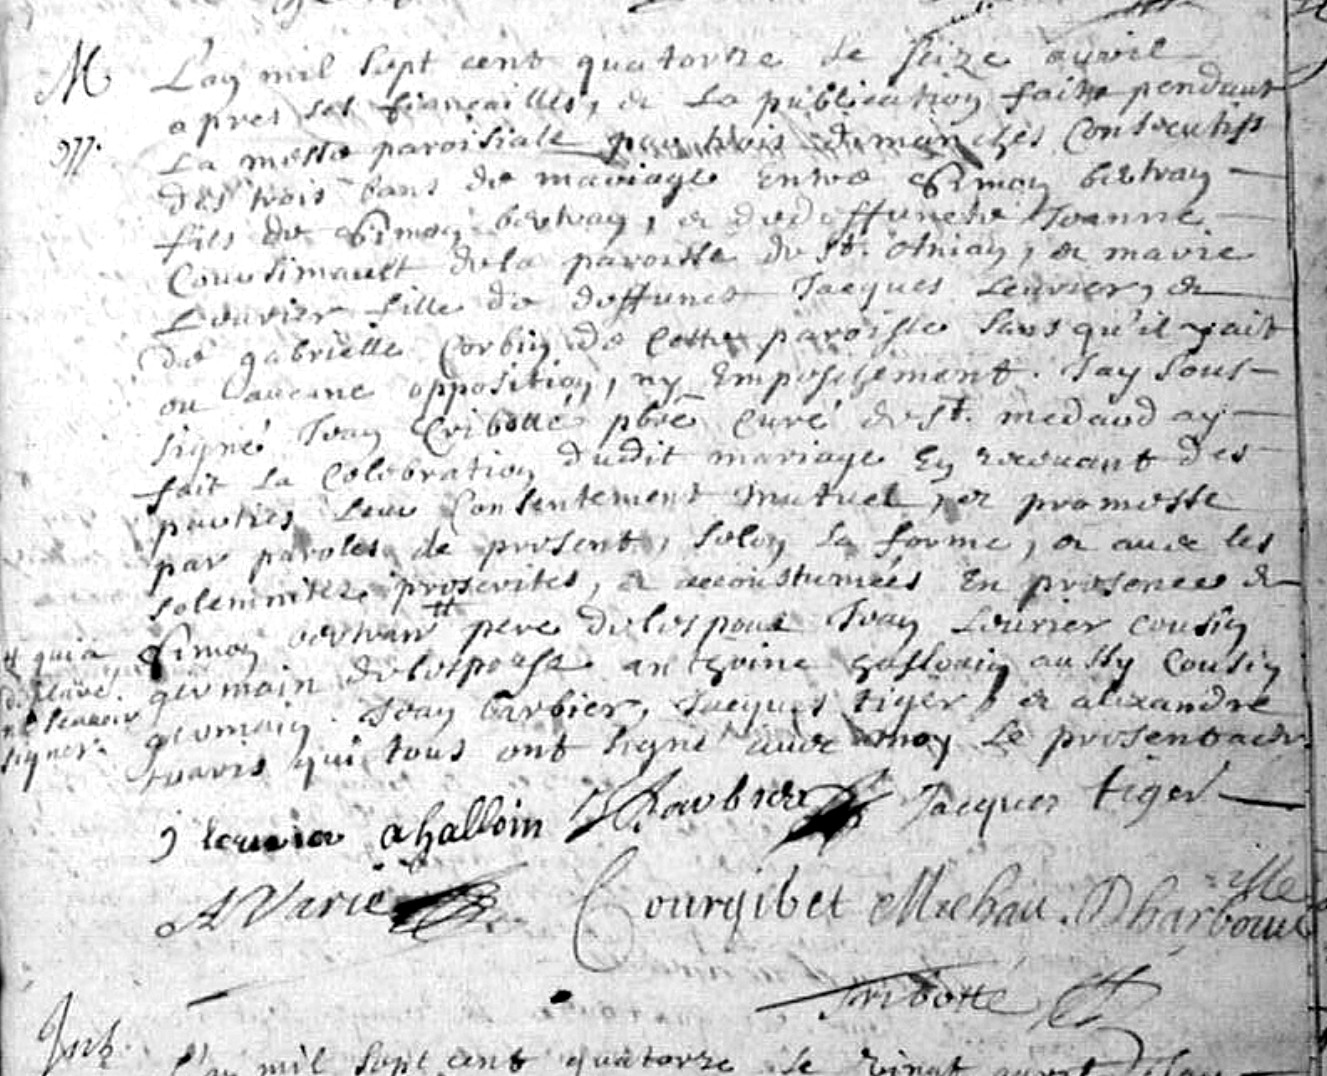 M
L'an mil sept cent quatorze le seize avril
apres les fiançailles, & la publication faitte pendant
la messe paroisiale par trois dimanches consecutifs
des trois bans de mariage entre Simon bertran
fils de Simon bertran, & de deffuncte Jeanne
Cousimault de la paroisse de St. Anian, & marie
Leuvrier fille de deffunct Jacques Leuvrier, &
de gabrielle Corbin de cette paroisse sans qu'il y ait
eu aucune opposition, ny Empeschement. Jay sous-
signé Jean Tribotté pbrê curé de St. medard ay
fait la celebration dudit mariage En recevant des
parties leur Consentement mutuel, & promesse
par paroles de present, selon la forme, & avec les
solemnitez prescrites, & accoustumées En presence de
Simon bertran # pere de lespoux Jean Leuvrier cousin
germain de lespouse antoine hallouin aussy cousin
germain. Jean barbier, Jacques tiger, & alexandre
varis qui tous ont signé avec moy le present acte
# qui a
declaré
ne scavoir
signer.
J leuvrier ahalloin J barbier Jacques tiger
A Varie Courgibet Michau. D harbouville
Tribotté
L'an mil sept cent quatorze le vingt avril